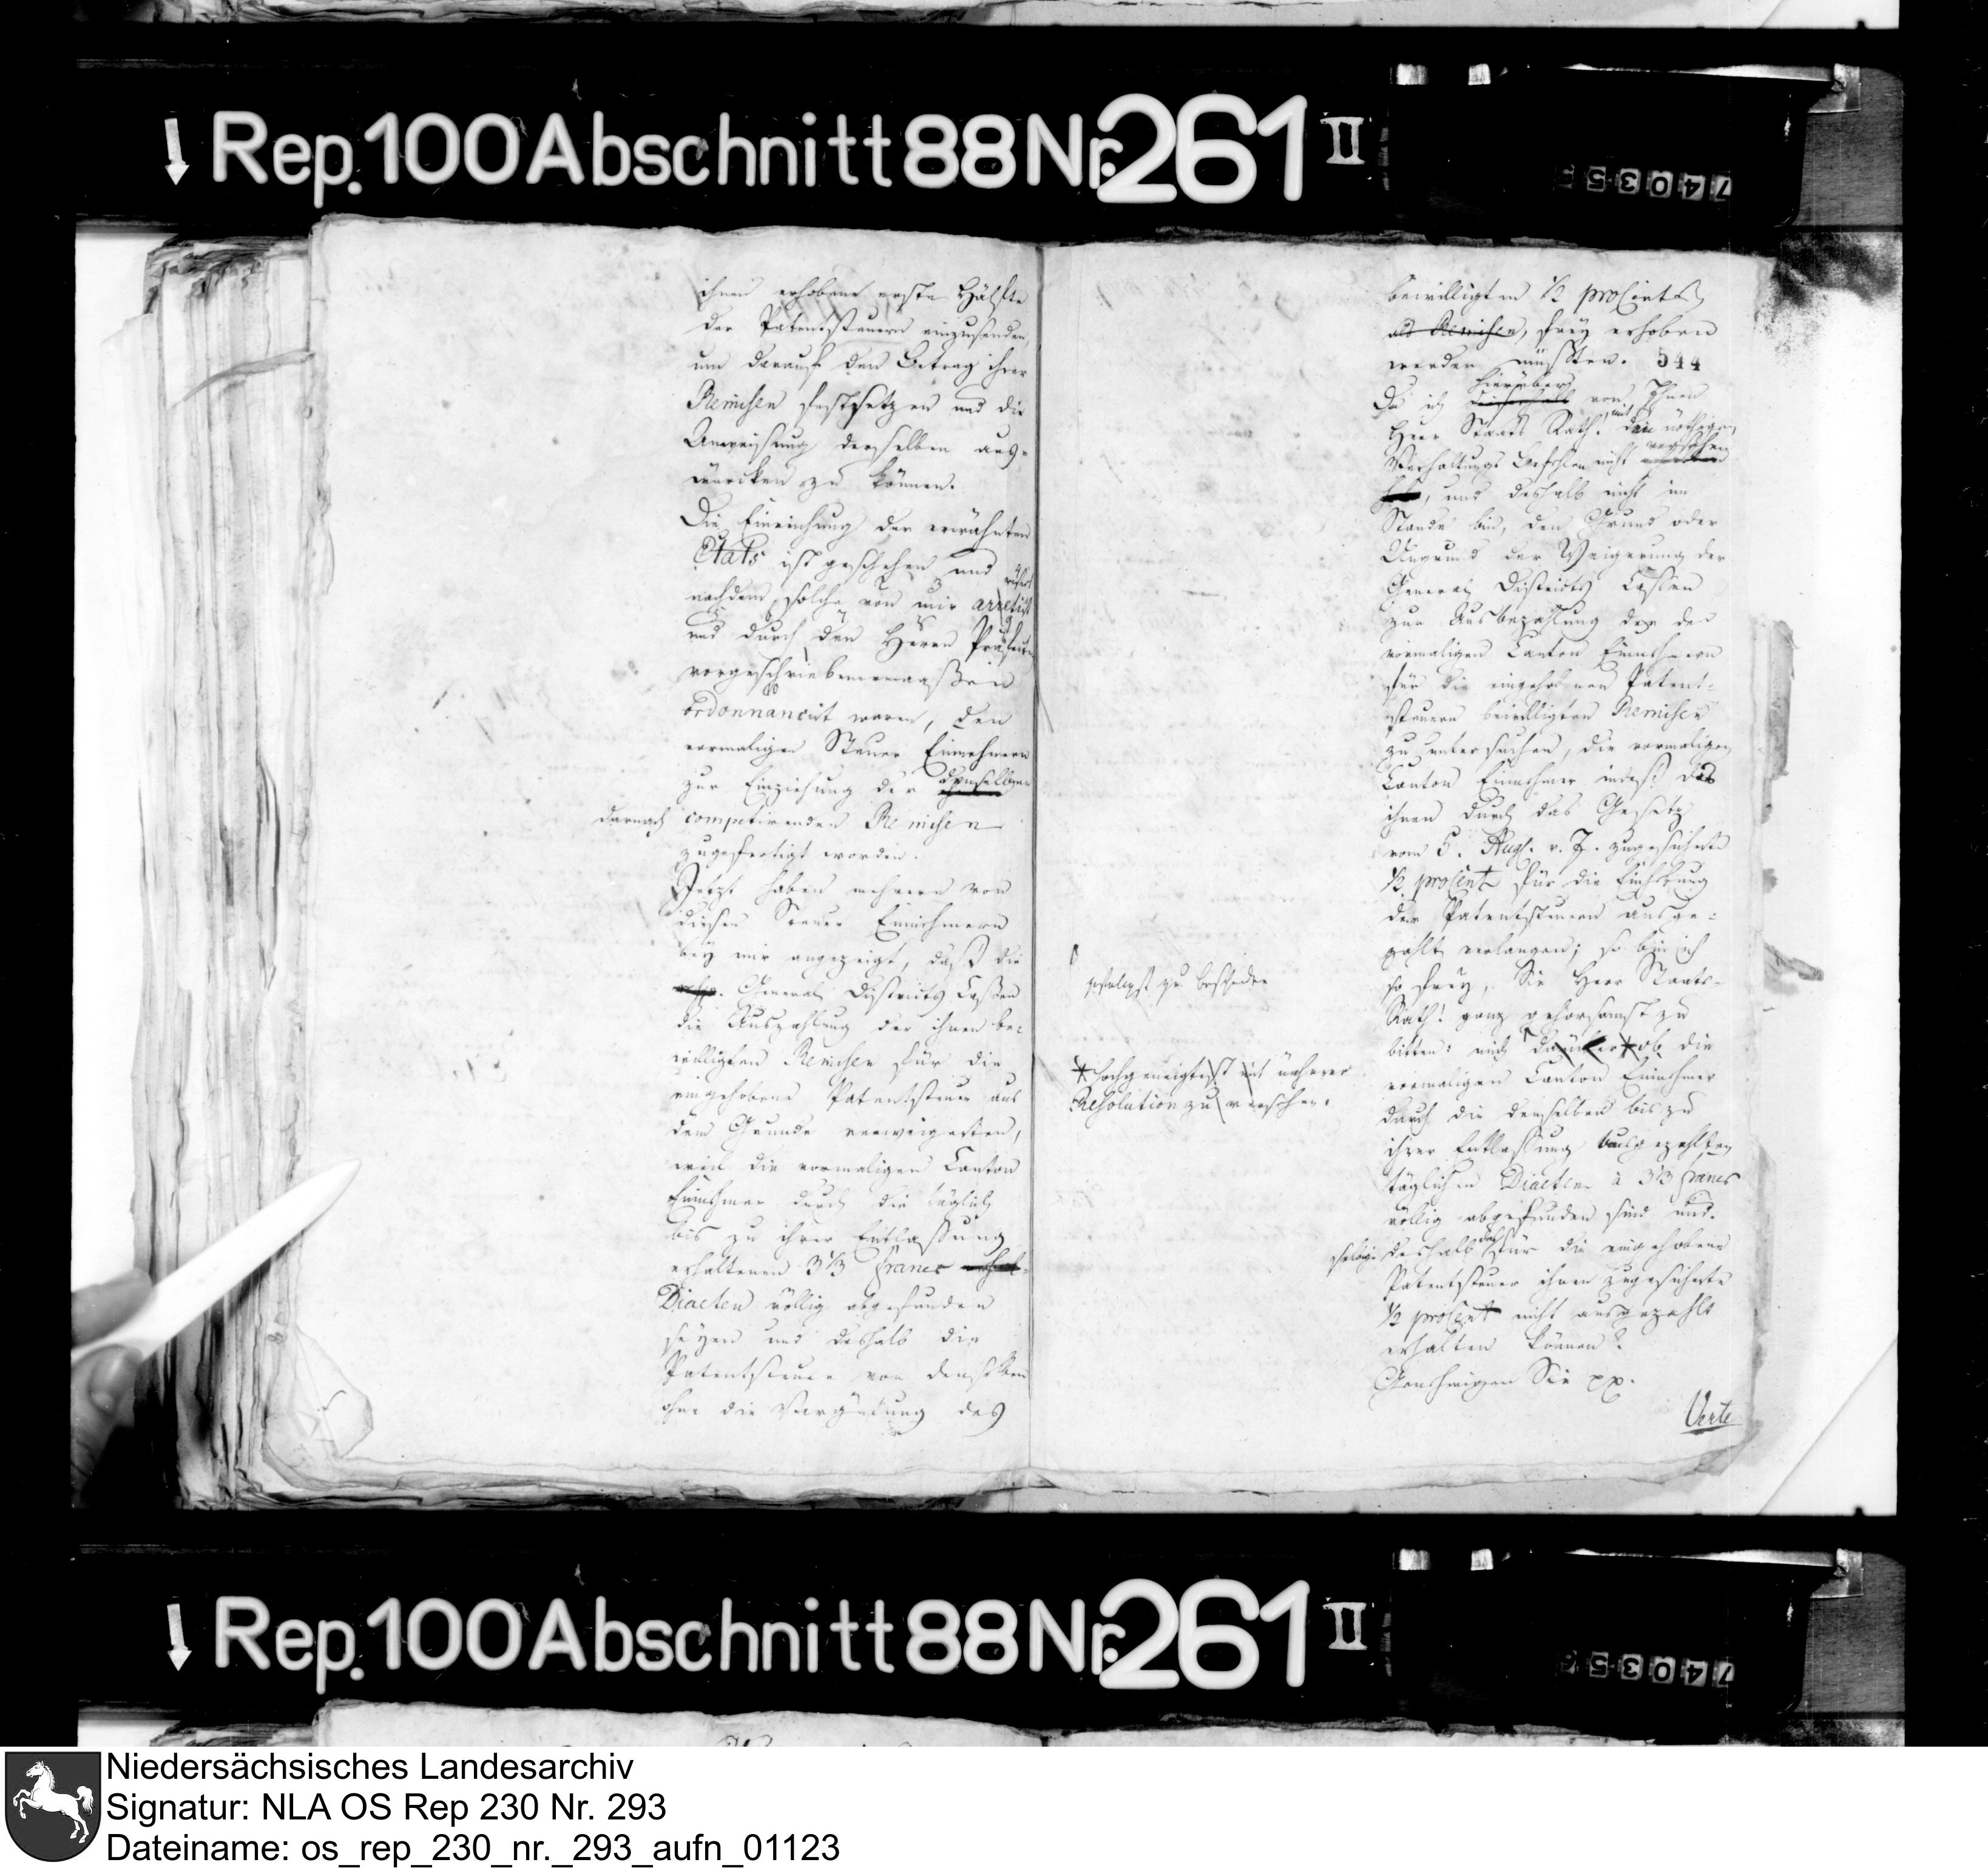 Rep. 100 Abschnitt 88 Nr. 261 II
74035
ihnen erhobene erste Hälfte
der Patentsteuern einzusenden,
um darauf den Betrag ihrer
Remisen festsetzen und die
Anweisung derselben aus-
würcken zu können.
Die Einreichung der erwähnten
Etats ist geschehen und
nachdem solche von mir arretirt
und durch den Herrn Präfecten
vorgeschriebenermaaßen
ordonnancirt waren, den
vormaligen Steuer Einnehmern
zur Einziehung der denselben
darnach competirenden Remisen
zugefertigt worden.
Jetzt haben mehrere von
diesen Steuer Einnehmern
bey mir angezeigt, daß die
General Districts Cassen
die Auszahlung der ihnen be-
willigten Remisen für die
eingehobene Patentsteuer aus
dem Grunde verweigerten,
weil die vormaligen Canton
Einnehmer durch die täglich
bis zu ihrer Entlassung
erhaltenen 3 1/3 francs
Diaeten völlig abgefunden
seyen und deshalb die
Patentsteuer von denselben
ohne die Vergütung des
bewilligten 1/2 proCents
als Remisen, frey erhoben
werden müssten. 544
Da ich hierüber von Ihnen
Herr Staats Rath! mit den nöthigen
Verhaltungs Befehlen nicht versehen
und deshalb nicht im
Stande bin, den Grund oder
Ungrund der Weigerung der
General Districts Cassen
zur Ausbezahlung der den
vormaligen Canton Einnehmern
für die eingehobenen Patent-
steuern bewilligten Remisen
zu untersuchen, die vormaligen
Canton Einnehmer indeß das
ihnen durch das Gesetz
vom 5. Aug. v. J. zugesicherte
1/2 proCent für die Einhebung
der Patentsteuern ausge-
zahlt verlangen; so bin ich
so frey, Sie Herr Staats-
Rath! ganz gehorsamst zu
bitten: mich darüber * ob die
zu bescheiden
* hochgeneigtest mit näherer
Resolution zu versehen.
vormaligen Canton Einnehmer
durch die denselben bis zu
ihrer Entlassung ausgezahlten
täglichen Diaeten à 3 1/3 francs
völlig abgefunden sind und
deshalb das für die eingehobene
Patentsteuer ihnen zugesicherte
1/2 proCent nicht ausgezahlt
erhalten können?
Genehmigen Sie pp.
Verte
Rep. 100 Abschnitt 88 Nr. 261 II
74035
Niedersächsisches Landesarchiv
Signatur: NLA OS Rep 230 Nr. 293
Dateiname: os_rep_230_nr._293_aufn_01123